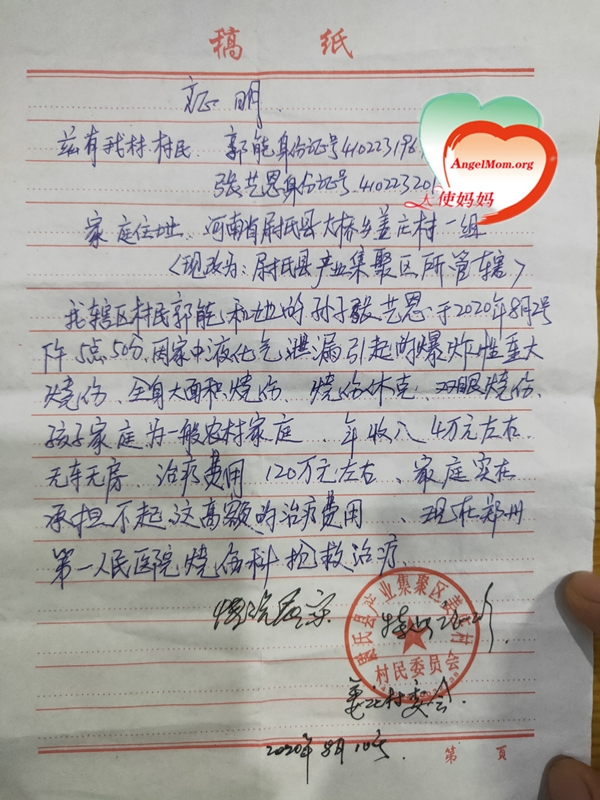 稿 纸
证明
兹有我村村民 郭能身份证号410223196
张艺恩身份证号 41022320
AngelMom.org
天使妈妈
家庭住址 河南省尉氏县大桥乡姜庄村一组
(现改为:尉氏县产业集聚区所管辖)
我辖区村民郭能和她的孙子张艺恩.于2020年8月2号
下午5点50分.因家中液化气泄漏引起的爆炸性重大
烧伤、全身大面积烧伤、烧伤休克、双眼烧伤.
孩子家庭为一般农村家庭、年收入4万元左右
无车无房、治疗费用120万元左右、家庭实在
承担不起这高额的治疗费用、现在郑州
第一人民医院烧伤科抢救治疗.
情况属实 特此证明
尉氏县产业集聚区姜庄村
村民委员会
姜庄村委会.
2020年8月10号
第 页